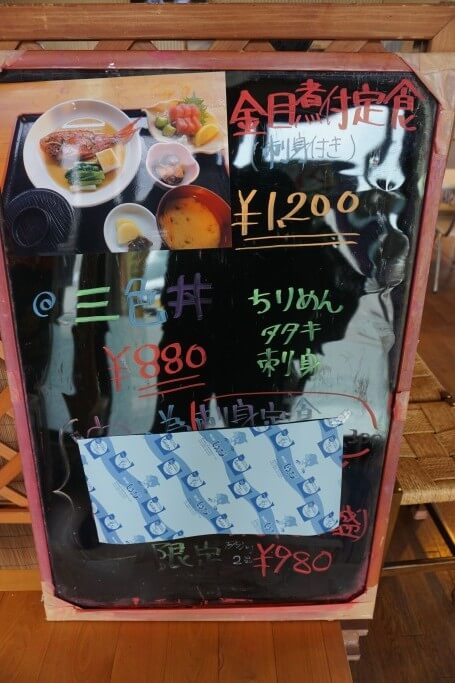 金目煮付定食
(刺身付き)
¥1,200
@三色丼
ちりめん
タタキ
刺身
¥880
刺身定食
盛)
限定
¥980